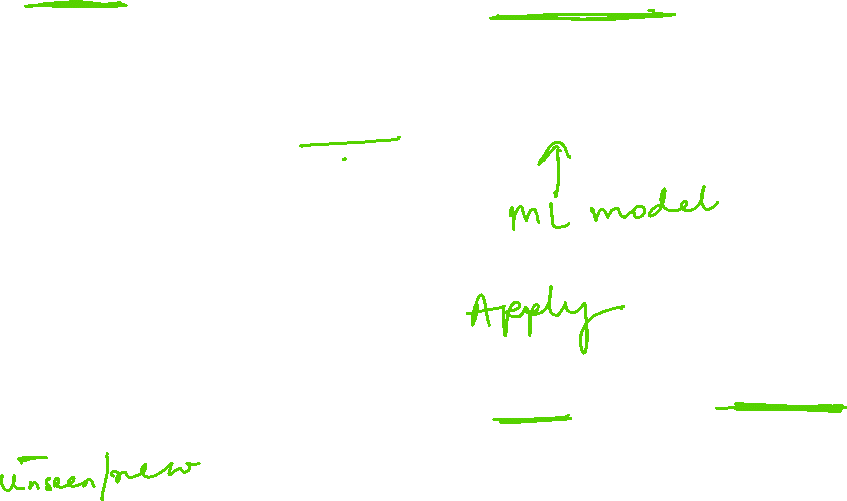 ML model
Apply
unseen/new